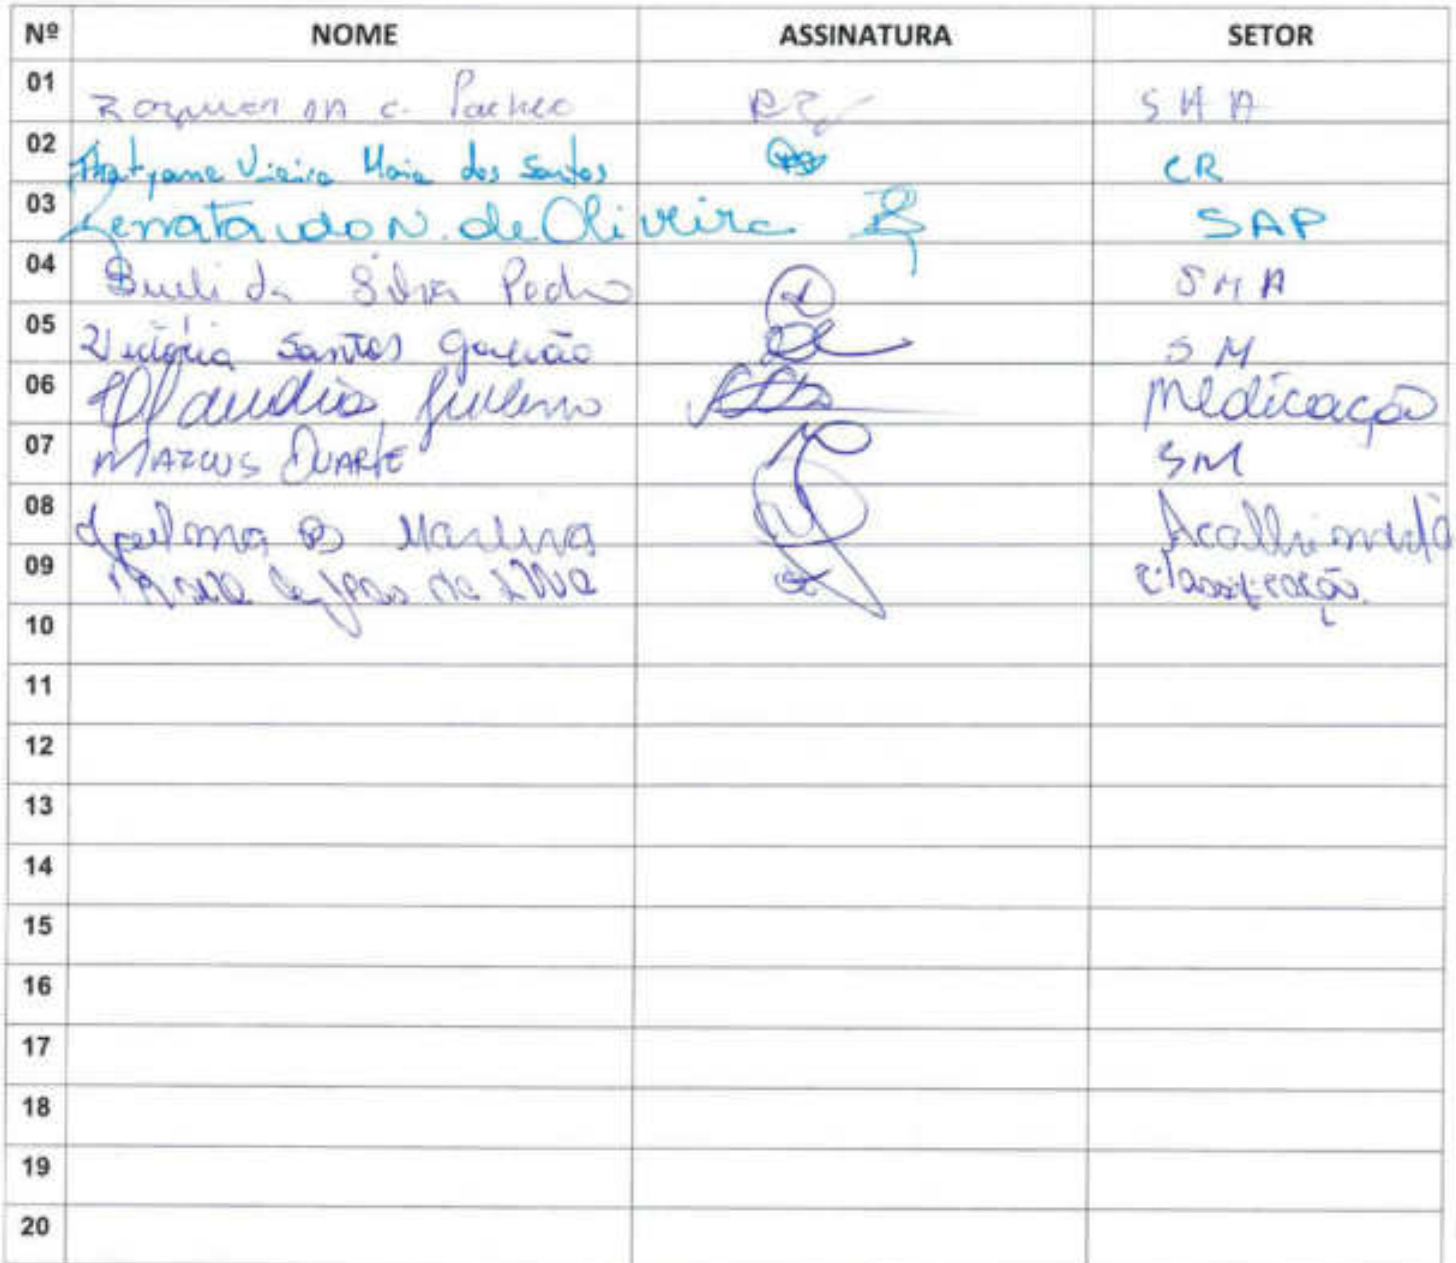 Nº NOME ASSINATURA SETOR
01 c. Pacheco SMA
02 Thatyane Vieira Maia dos Santos CR
03 Renata do N. de Oliveira SAP
04 Sueli da Silva Pedro SMA
05 Victória Santos Galvão SM
06 Claudia Medicação
07 MARCUS DUARTE SM
08 Martins Acolhimento
09 Classificação
10
11
12
13
14
15
16
17
18
19
20